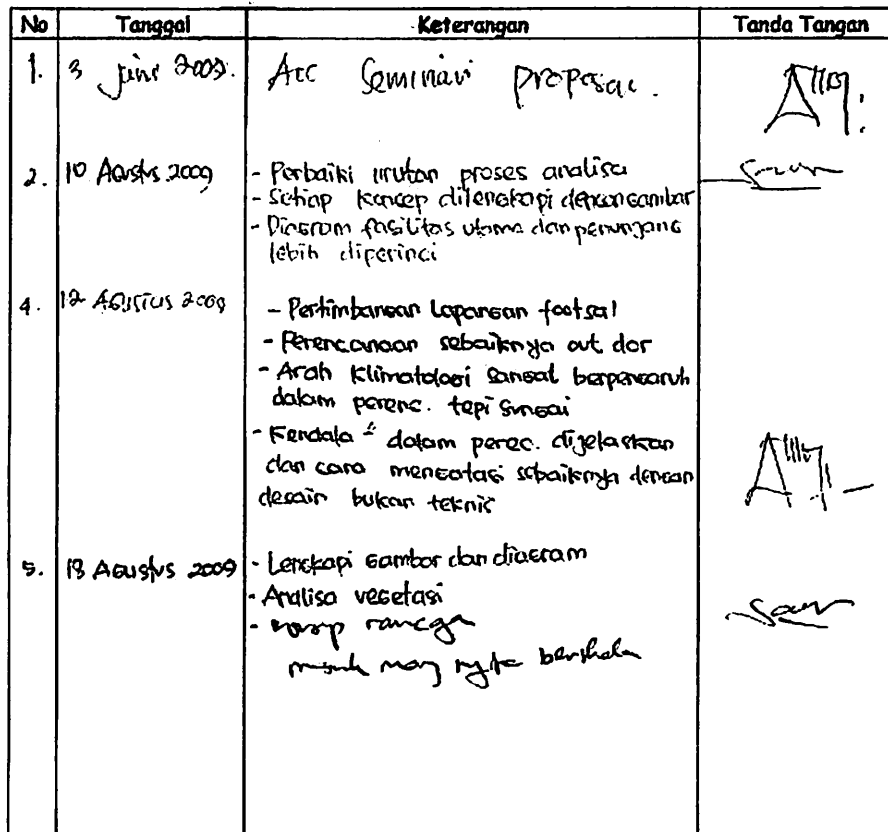 No Tanggal Keterangan Tanda Tangan
1. 3 Juni 2009. Acc Seminari proposal.
2. 10 Agustus 2009 - Perbaiki urutan proses analisa
- Setiap konsep dilengkapi dengan gambar
- Diagram fasilitas utama dan penunjang
lebih diperinci
4. 12 Agustus 2009 - Pertimbangan lapangan footsal
- Perencanaan sebaiknya out dor
- Arah klimatologi sangat berpengaruh
dalam perenc. tepi sungai
- Kendala" dalam perec. dijelaskan
dan cara mengatasi sebaiknya dengan
desain bukan teknis
5. 18 Agustus 2009 - Lengkapi gambar dan diagram
- Analisa vegetasi
-